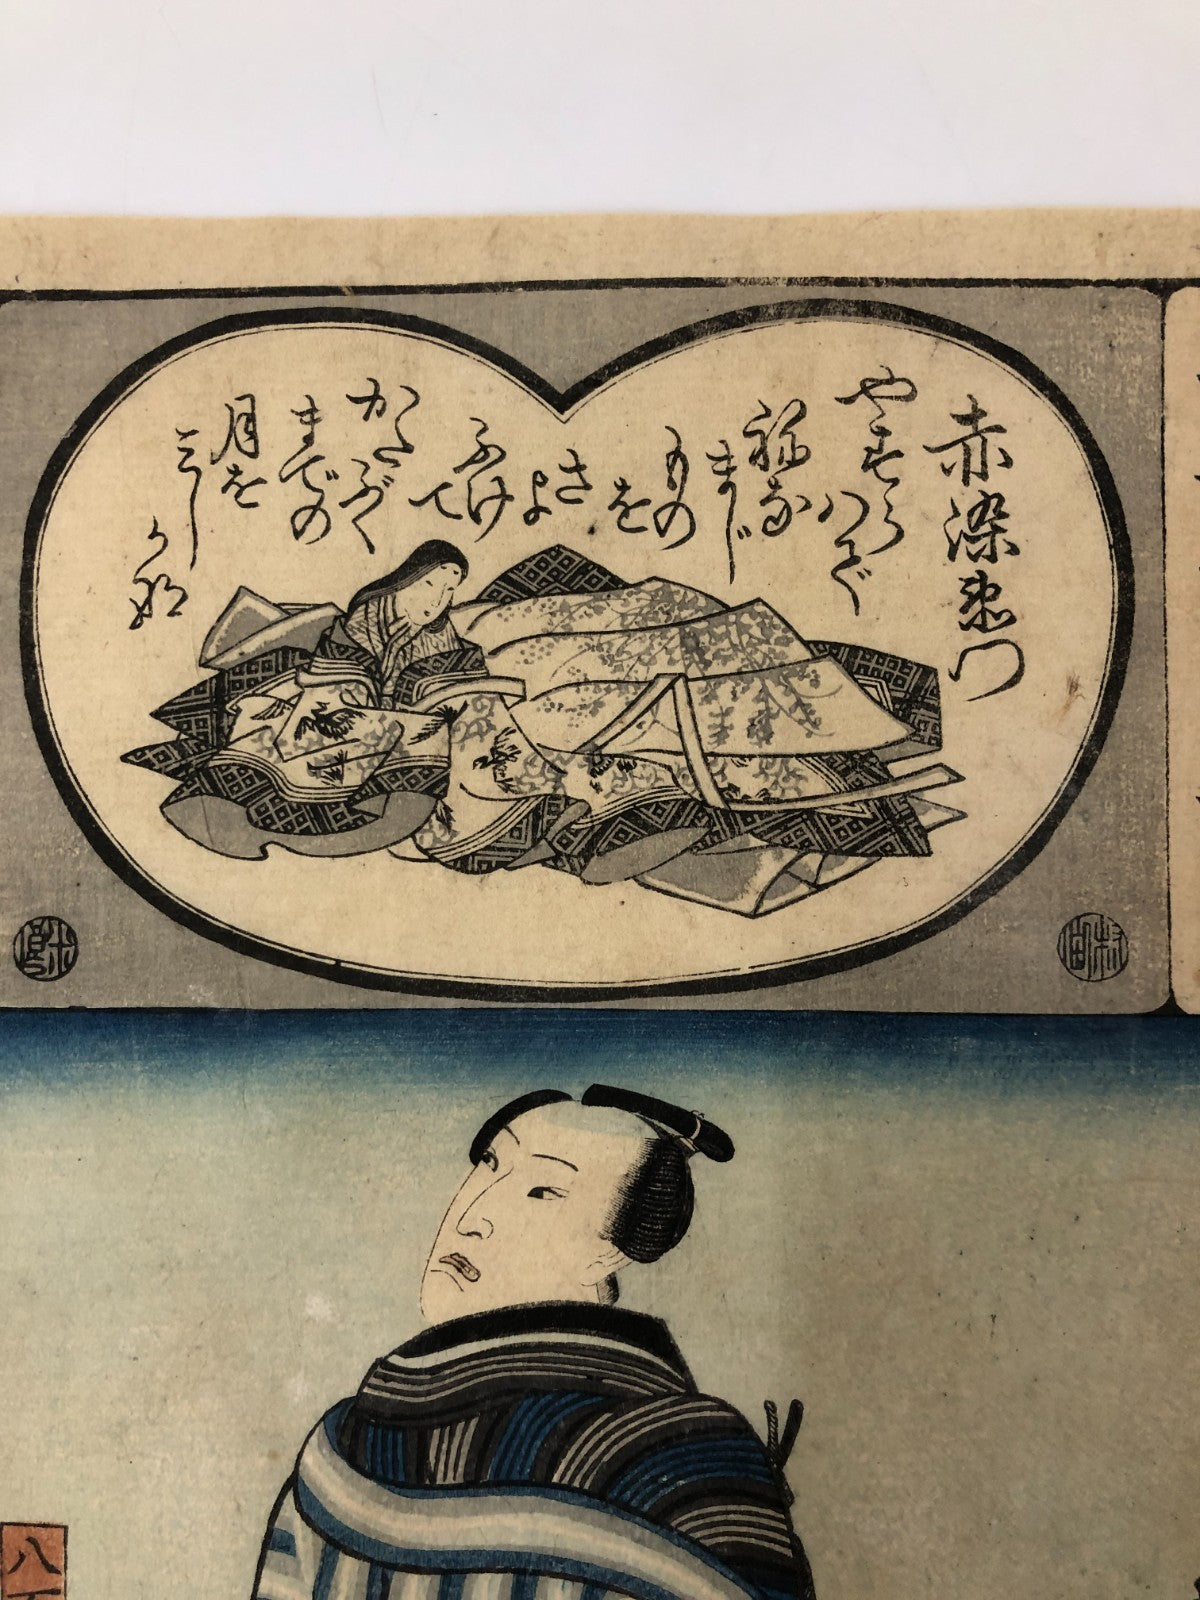 赤染衛門
やすらはで
ねな
まじ
もの
を
さ
よ
ふけ
て
かたぶく
までの
月を
みし
か那
村
八